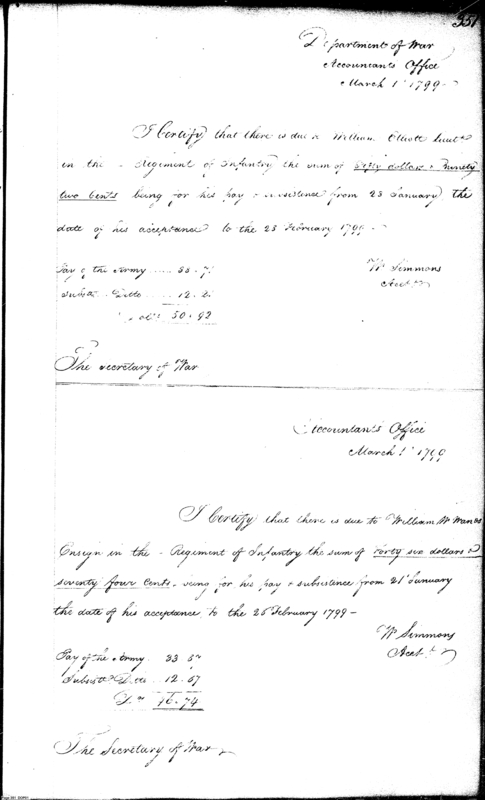 351
Department of War
Accountants Office
March 1st 1799
I Certify that there is due to William Elliott Lieutt
in the - Regiment of Infantry the sum of fifty dollars & ninety
two Cents being for his pay & subsistence from 23 January the
date of his acceptance to the 23 February 1799 -
Pay of the Army
W Simmons
Subste Ditto 12.2
Acct
50.92
The Secretary of War
Accountants Office
March 1st 1799
I Certify that there is due to William W
Ensign in the - Regiment of Infantry the sum of forty six dollars &
seventy four Cents, being for his pay & subsistence from 21st January
the date of his acceptance to the 26 February 1799 -
W Simmons
Acct
Pay of the Army 33
Subste Ditto 12.67
Drs 46.74
The Secretary of War